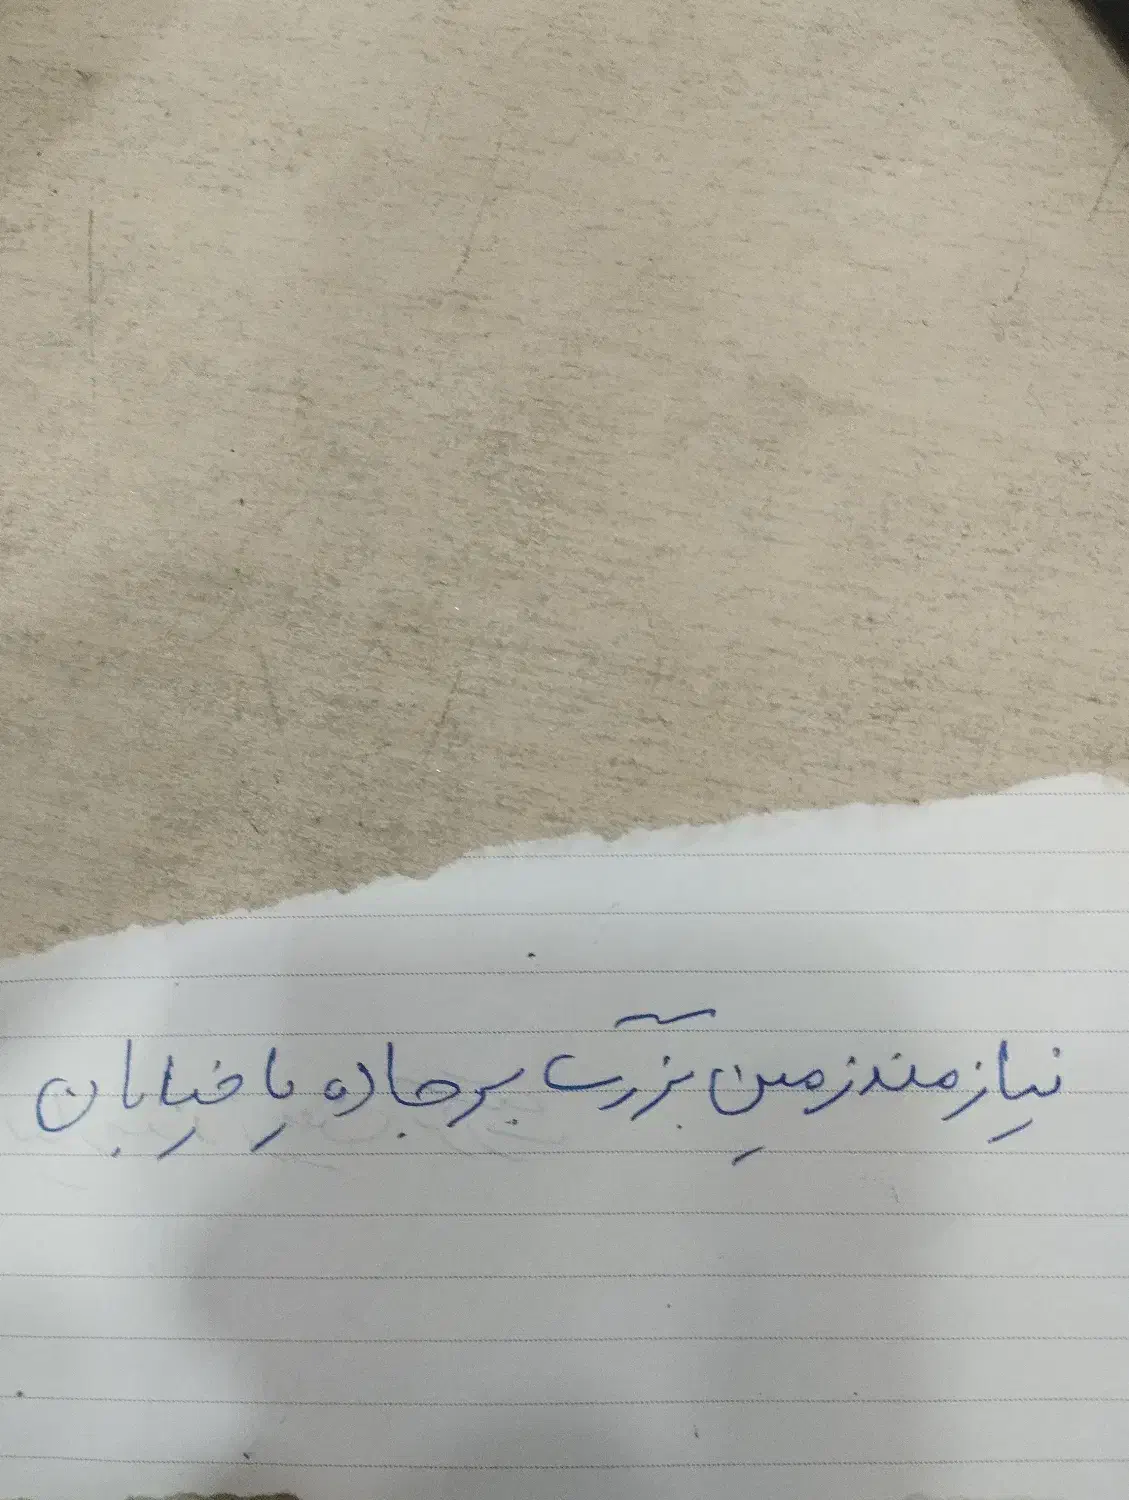 نیازمند زمین بزرگ بر جاده یا خیابان